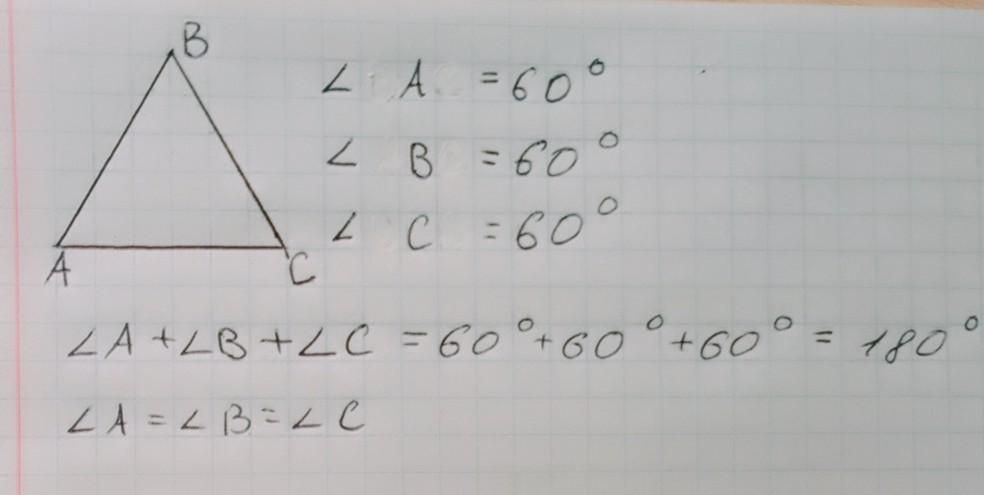 B
∠ A = 60°
∠ B = 60°
∠ C = 60°
A
C
∠A + ∠B + ∠C = 60° + 60° + 60° = 180°
∠A = ∠B = ∠C